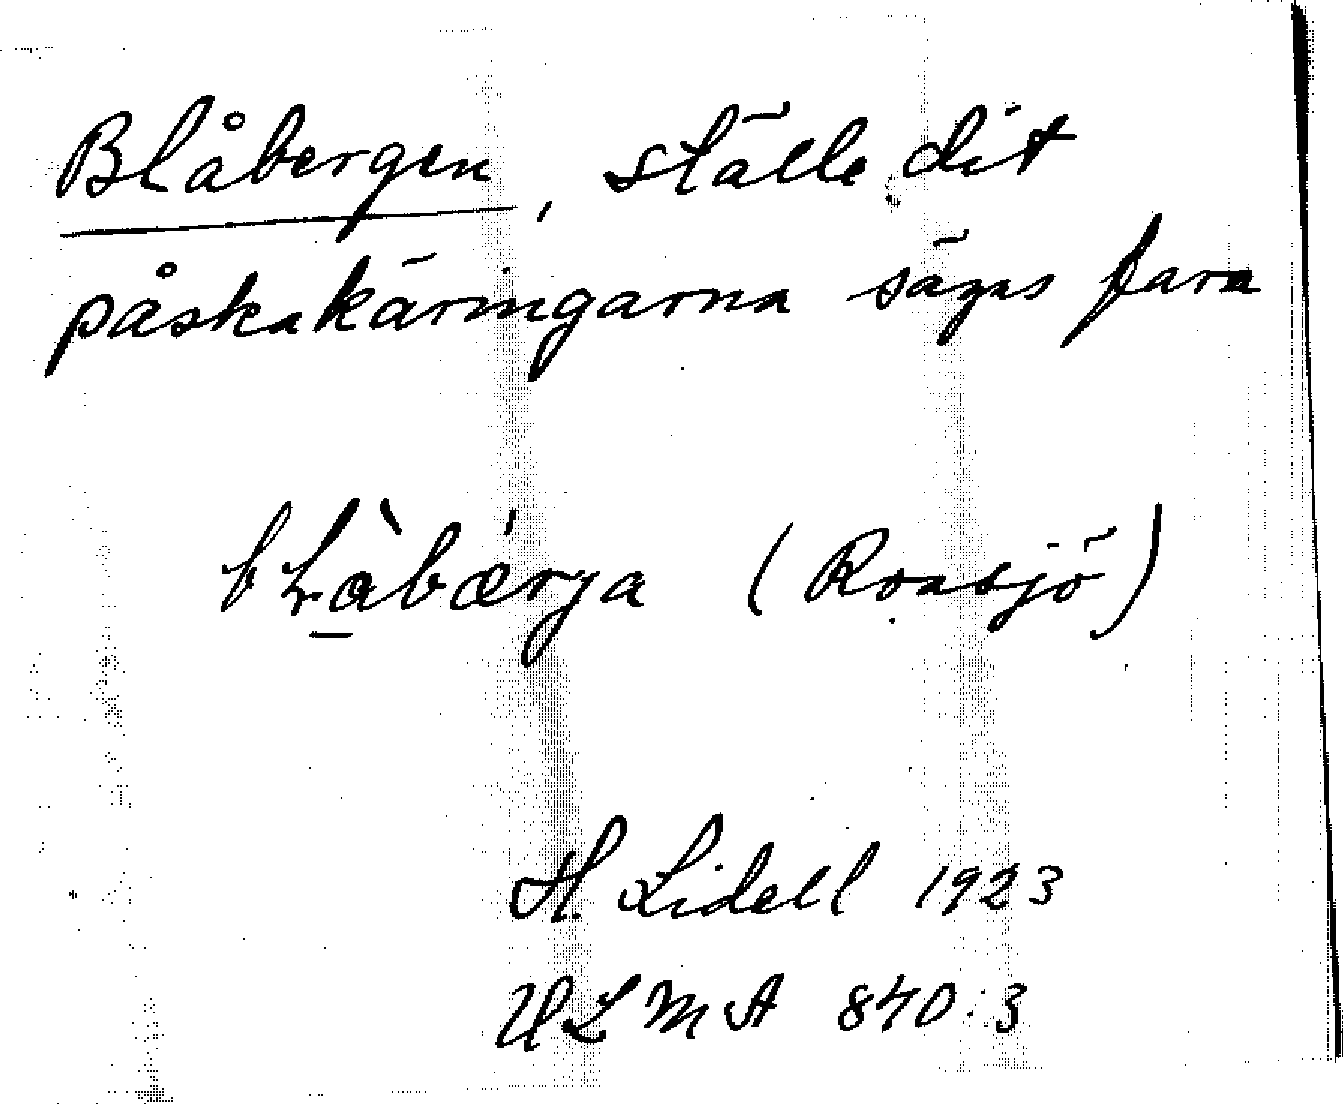 Blåbergen, ställe dit
påskakäringarna sägas fara
bḷàbǽrja (Roasjö)
H. Lidell 1923
ULMA 840:3